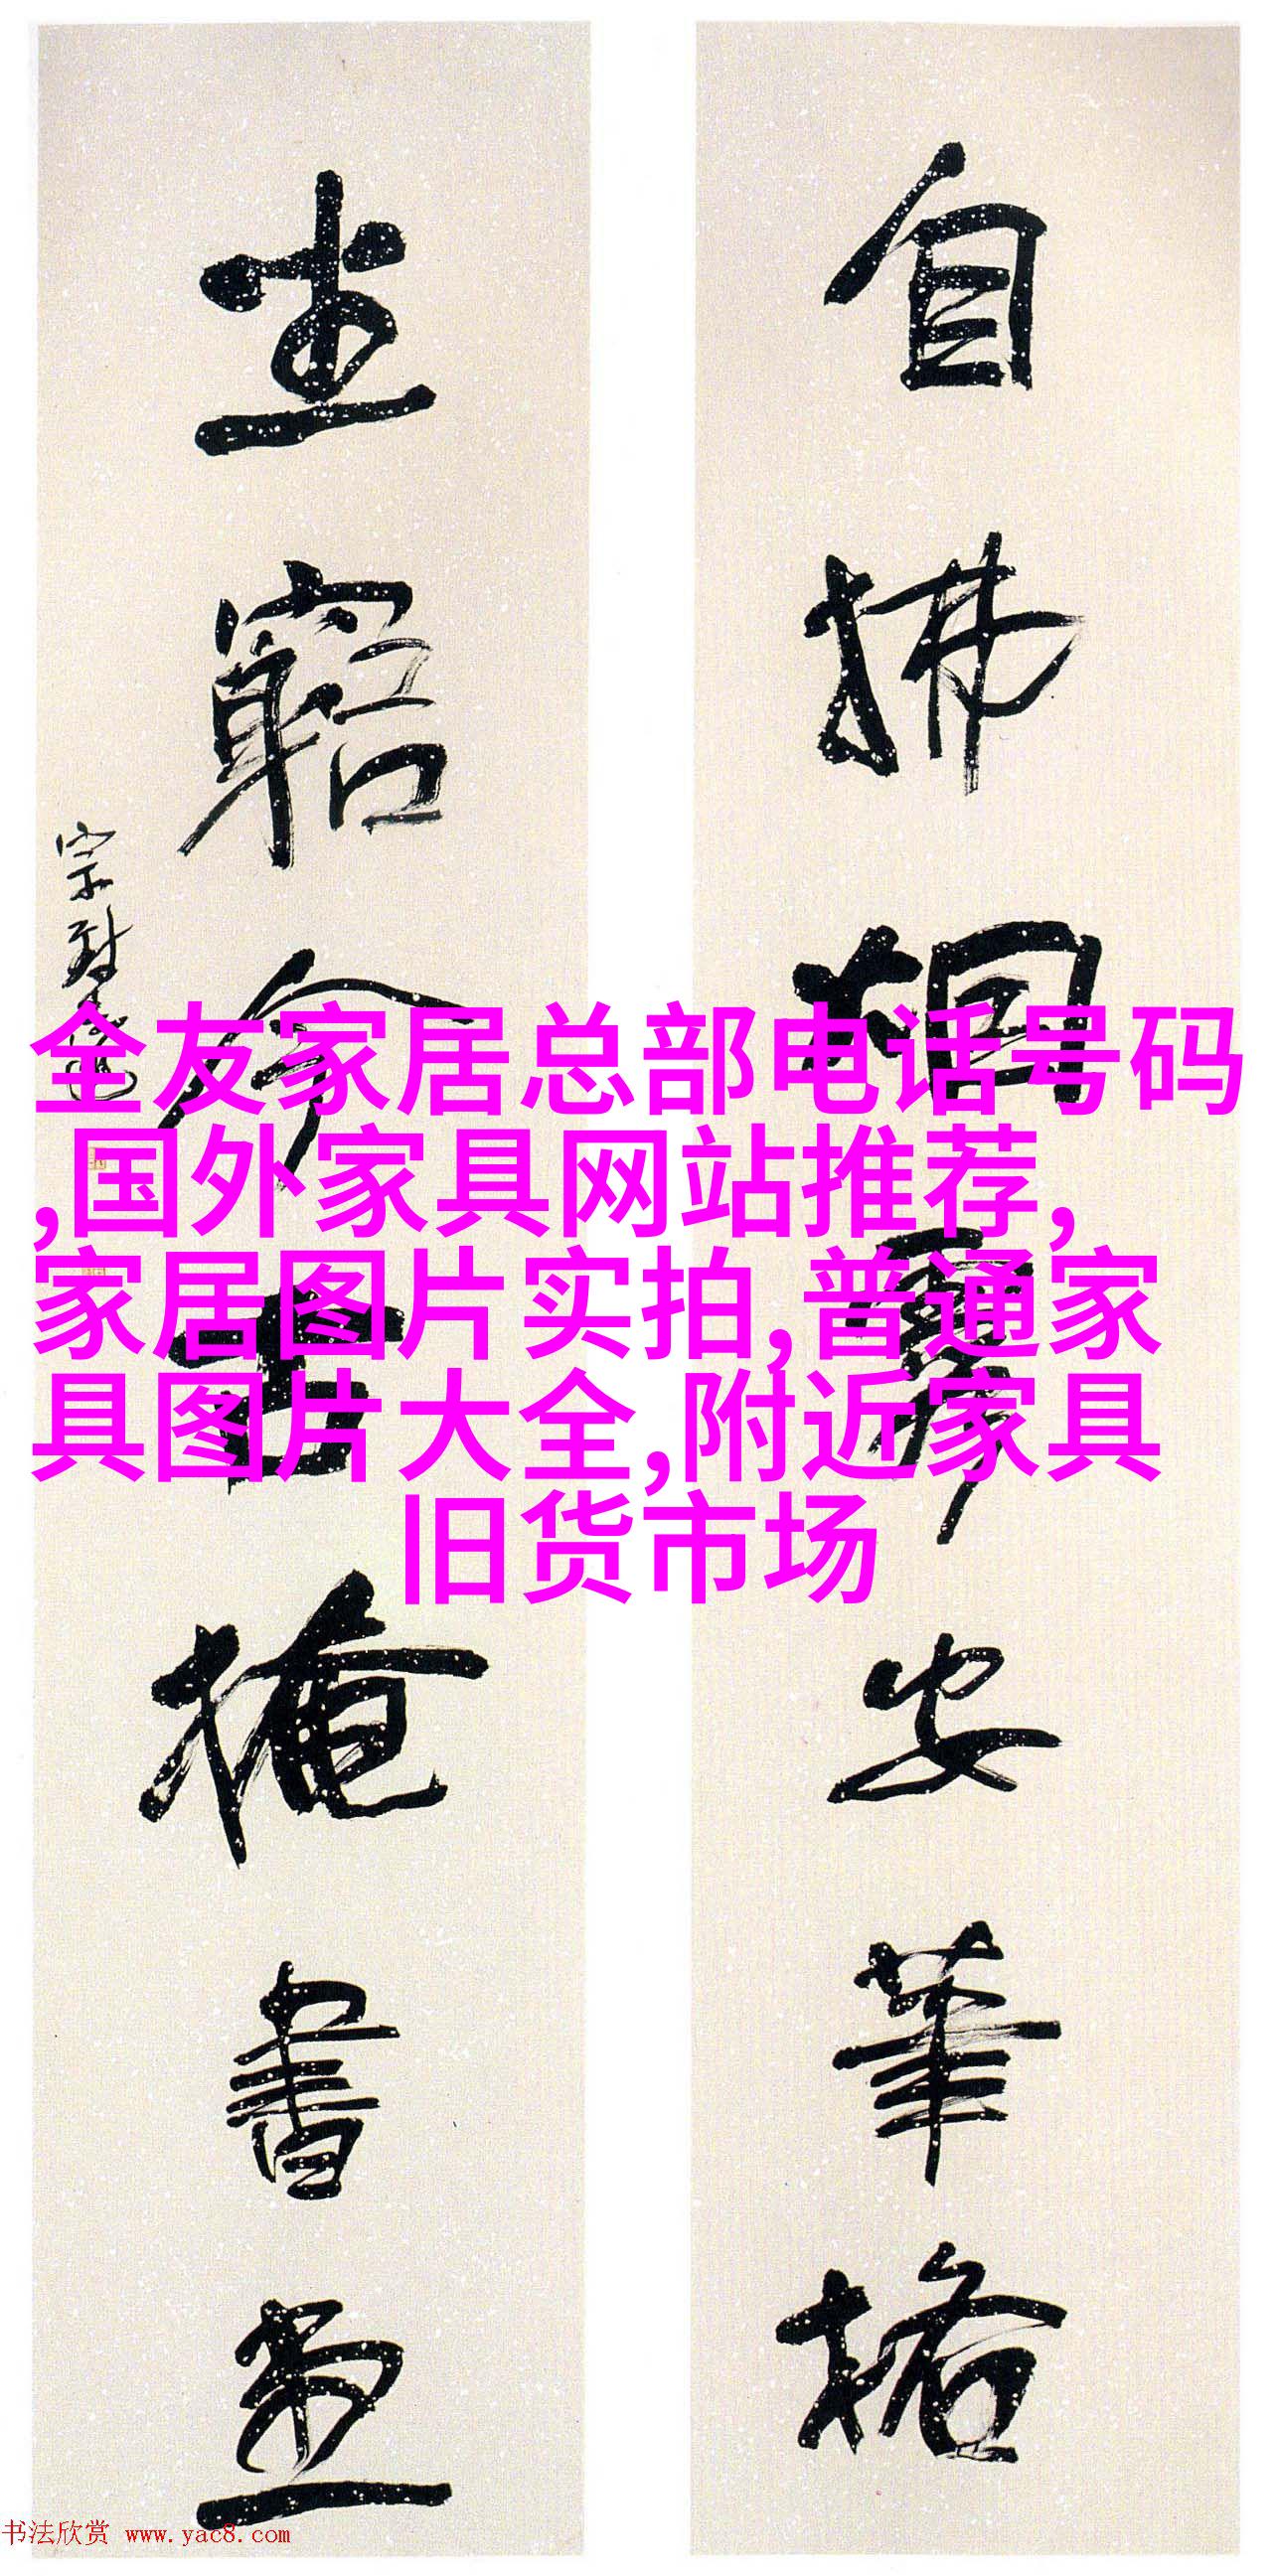 自拂烟霞安筆格
坐窮今古掩書堂
全友家居总部电话号码
,国外家具网站推荐,
家居图片实拍,普通家
具图片大全,附近家具
旧货市场
书法欣赏 www.yac8.com